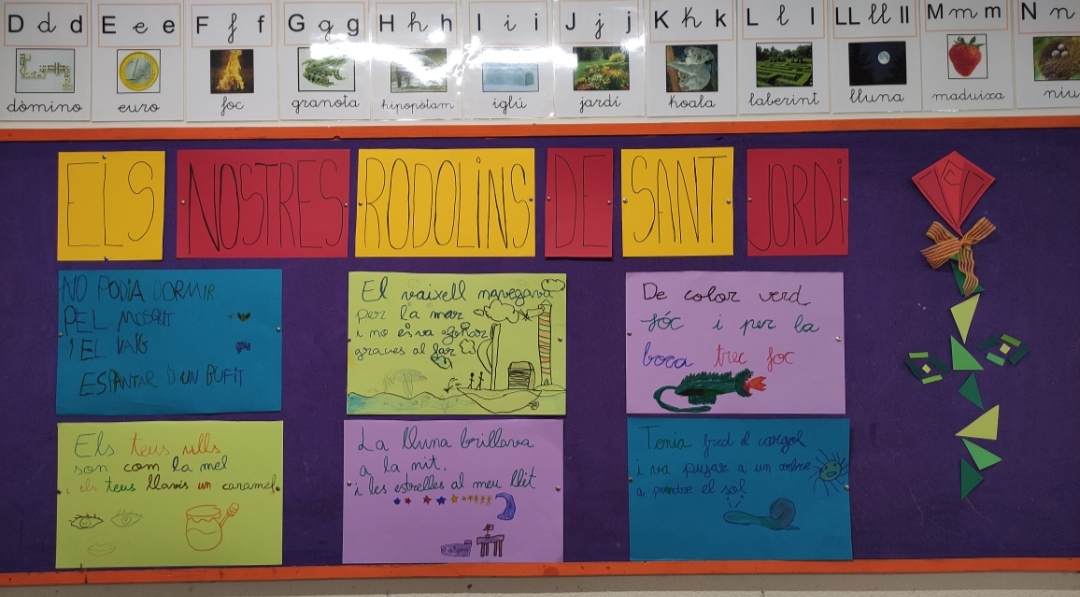 D d d E e e F f f G g g H h h I i i J j j K k k L l l LL ll ll M m m N n
dòmino euro foc granota hipopòtam iglú jardí koala laberint lluna maduixa niu
ELS NOSTRES RODOLINS DE SANT JORDI
NO PODIA DORMIR
PEL MOSQUIT
I EL VAIG
ESPANTAR D'UN BUFIT
El vaixell navegava
per la mar
i no es va afonar
gràcies al far
De color verd
sóc i per la
boca trec foc
Els teus ulls
son com la mel
i els teus llavis un caramel
La lluna brillava
a la nit.
i les estrelles al meu llit
Tenia fred el cargol
i va pujar a un arbre
a prendre el sol